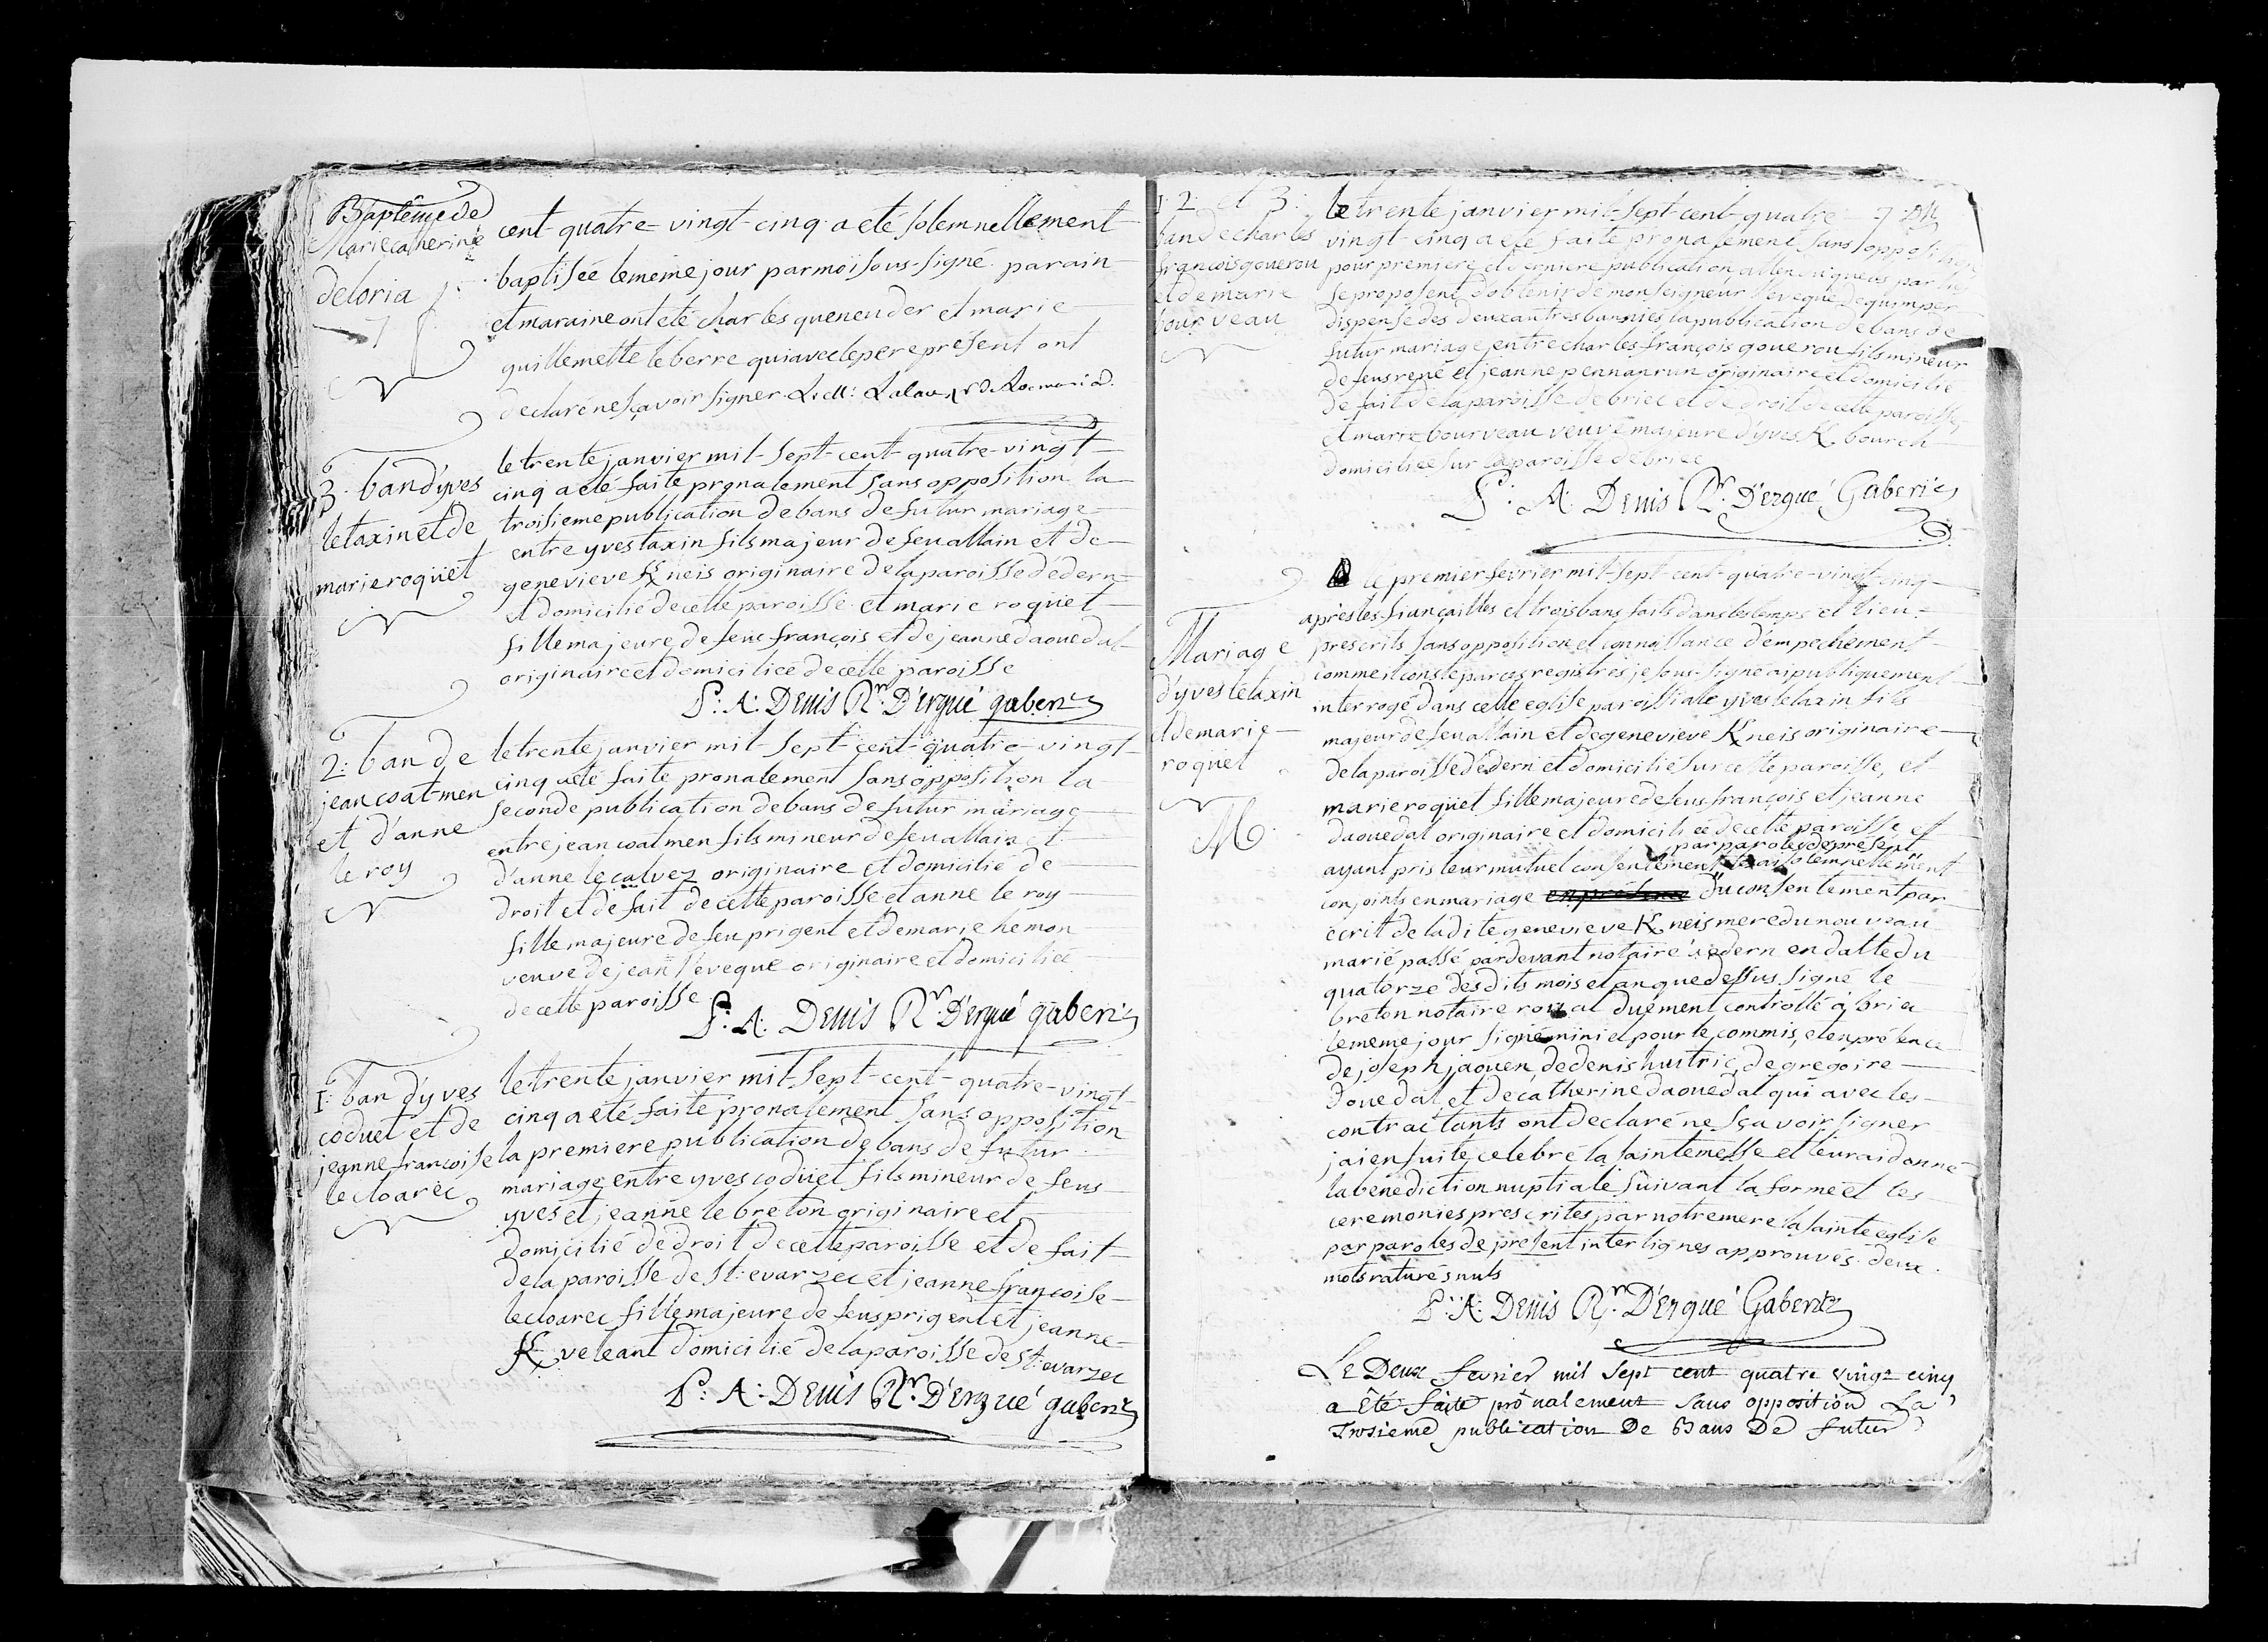 Baptême de
Marie catherine
deloria
cent quatre-vingt-cinq a eté solemnellement
baptisée le même jour par moi sous-signé parain
et maraine ont eté charles queneuder et marie
guillemette le berre qui avec le pere présent ont
declaré ne sçavoir signer.
3. ban d'yves
le taxin et de
marie roqüet
le trente janvier mil-sept-cent-quatre-vingt-
cinq a eté faite pronalement sans opposition la
troisieme publication de bans de futur mariage
entre yves taxin fils majeur de feu allain et de
genevieve K/neis originaire de la paroisse d'edern
et domicilié de cette paroisse et marie roqüet
fille majeure de feus françois et de jeanne daouedal
originaire et domiciliée de cette paroisse
P: A: Denis Rr. D'ergué gaberic
2: ban de
jean coatmen
et d'anne
le roy
le trente janvier mil-sept-cent-quatre-vingt-
cinq a eté faite pronalement sans opposition la
seconde publication de bans de futur mariage
entre jean coatmen fils mineur de feu allain et
d'anne le calvez originaire et domicilié de
droit et de fait de cette paroisse et anne le roy
fille majeure de feu prigent et de marie hemon
veuve de jean l'eveque originaire et domiciliée
de cette paroisse
P: A: Denis Rr. D'ergué gaberic
1: ban d'yves
coduet et de
jeanne françoise
le cloarec
le trente janvier mil-sept-cent-quatre-vingt-
cinq a eté faite pronalement sans opposition
la premiere publication de bans de futur
mariage entre yves codüet fils mineur de feus
yves et jeanne le breton originaire et
domicilié de droit de cette paroisse et de fait
de la paroisse de St: evarzec et jeanne-françoise
le cloarec fille majeure de feus prigent et jeanne
K/veleant domicilié de la paroisse de st: evarzec
P: A: Denis Rr. D'ergué gaberic
1 2 et 3:
ban de charles
françois gouerou
et de marie
bourveau
le trente janvier mil-sept-cent-quatre-
vingt-cinq a eté faite pronalement sans opposition
pour premiere et derniere publication attendu que les parties
se proposent d'obtenir de monseigneur l'eveque de quimper
dispense des deux autres bannies la publication de bans de
futur mariage entre charles françois gouerou fils mineur
de feus rené et jeanne pennanrun originaire et domicilié
de fait de la paroisse de briec et de droit de cette paroisse
et marie bourveau veuve majeure d'yves K/bourch
domiciliée sur la paroisse de briec
P: A: Denis Rr. D'ergué Gaberic
Mariage
d'yves le taxin
et de marie
roquet
M
le premier fevrier mil-sept-cent-quatre-vingt-cinq
après les fiançailles et trois bans faits dans les temps et lieu
prescrits sans opposition et connoissance d'empechement
comme il conste par ces registres je sous-signé ai publiquement
interrogé dans cette eglise paroissiale yves le taxin fils
majeur de feu allain et de genevieve K/neis originaire
de la paroisse d'edern et domicilié sur cette paroisse, et
marie roqüet fille majeure de feus françois et jeanne
daouedal originaire et domiciliée de cette paroisse et
par paroles de présent
ayant pris leur mutuel consentement les ai solemnellement
conjoints en mariage du consentement par
écrit de la dite genevieve K/neis mere du nouveau
marié passé pardevant notaire à edern en datte du
quatorze desdits mois et an que dessus signé le
breton notaire royal duëment controllé à briec
le meme jour signé miniel pour le commis, et en présence
de joseph jaouen, de denis hustric, de gregoire
douedal et de catherine daouedal qui avec les
contractants ont declaré ne sçavoir signer
j'ai ensuite celebré la sainte messe et leur ai donné
la benediction nuptiale suivant la forme et les
ceremonies prescrites par notre mere la sainte eglise
par paroles de présent interlignes approuvés. deux
mots raturés nuls
P: A: Denis Rr. D'Ergué Gaberic
Le Deux fevrier mil sept cent quatre vingt cinq
a êté faite prônalement sans opposition La
Troisieme publication De Bans De futur